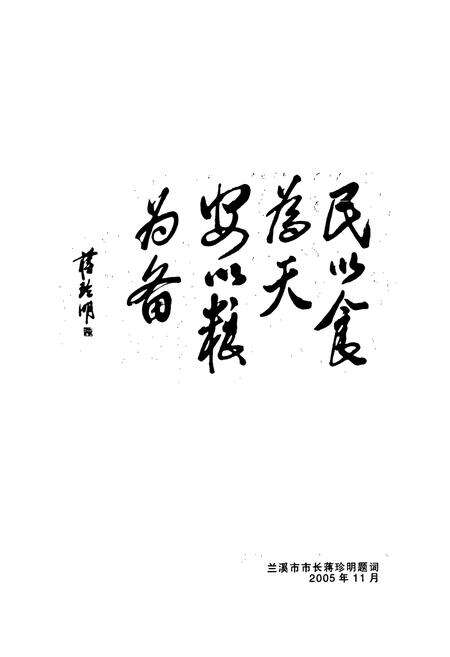 民以食
為天
安以粮
为备
蒋珍明
兰溪市市长蒋珍明题词
2005年11月